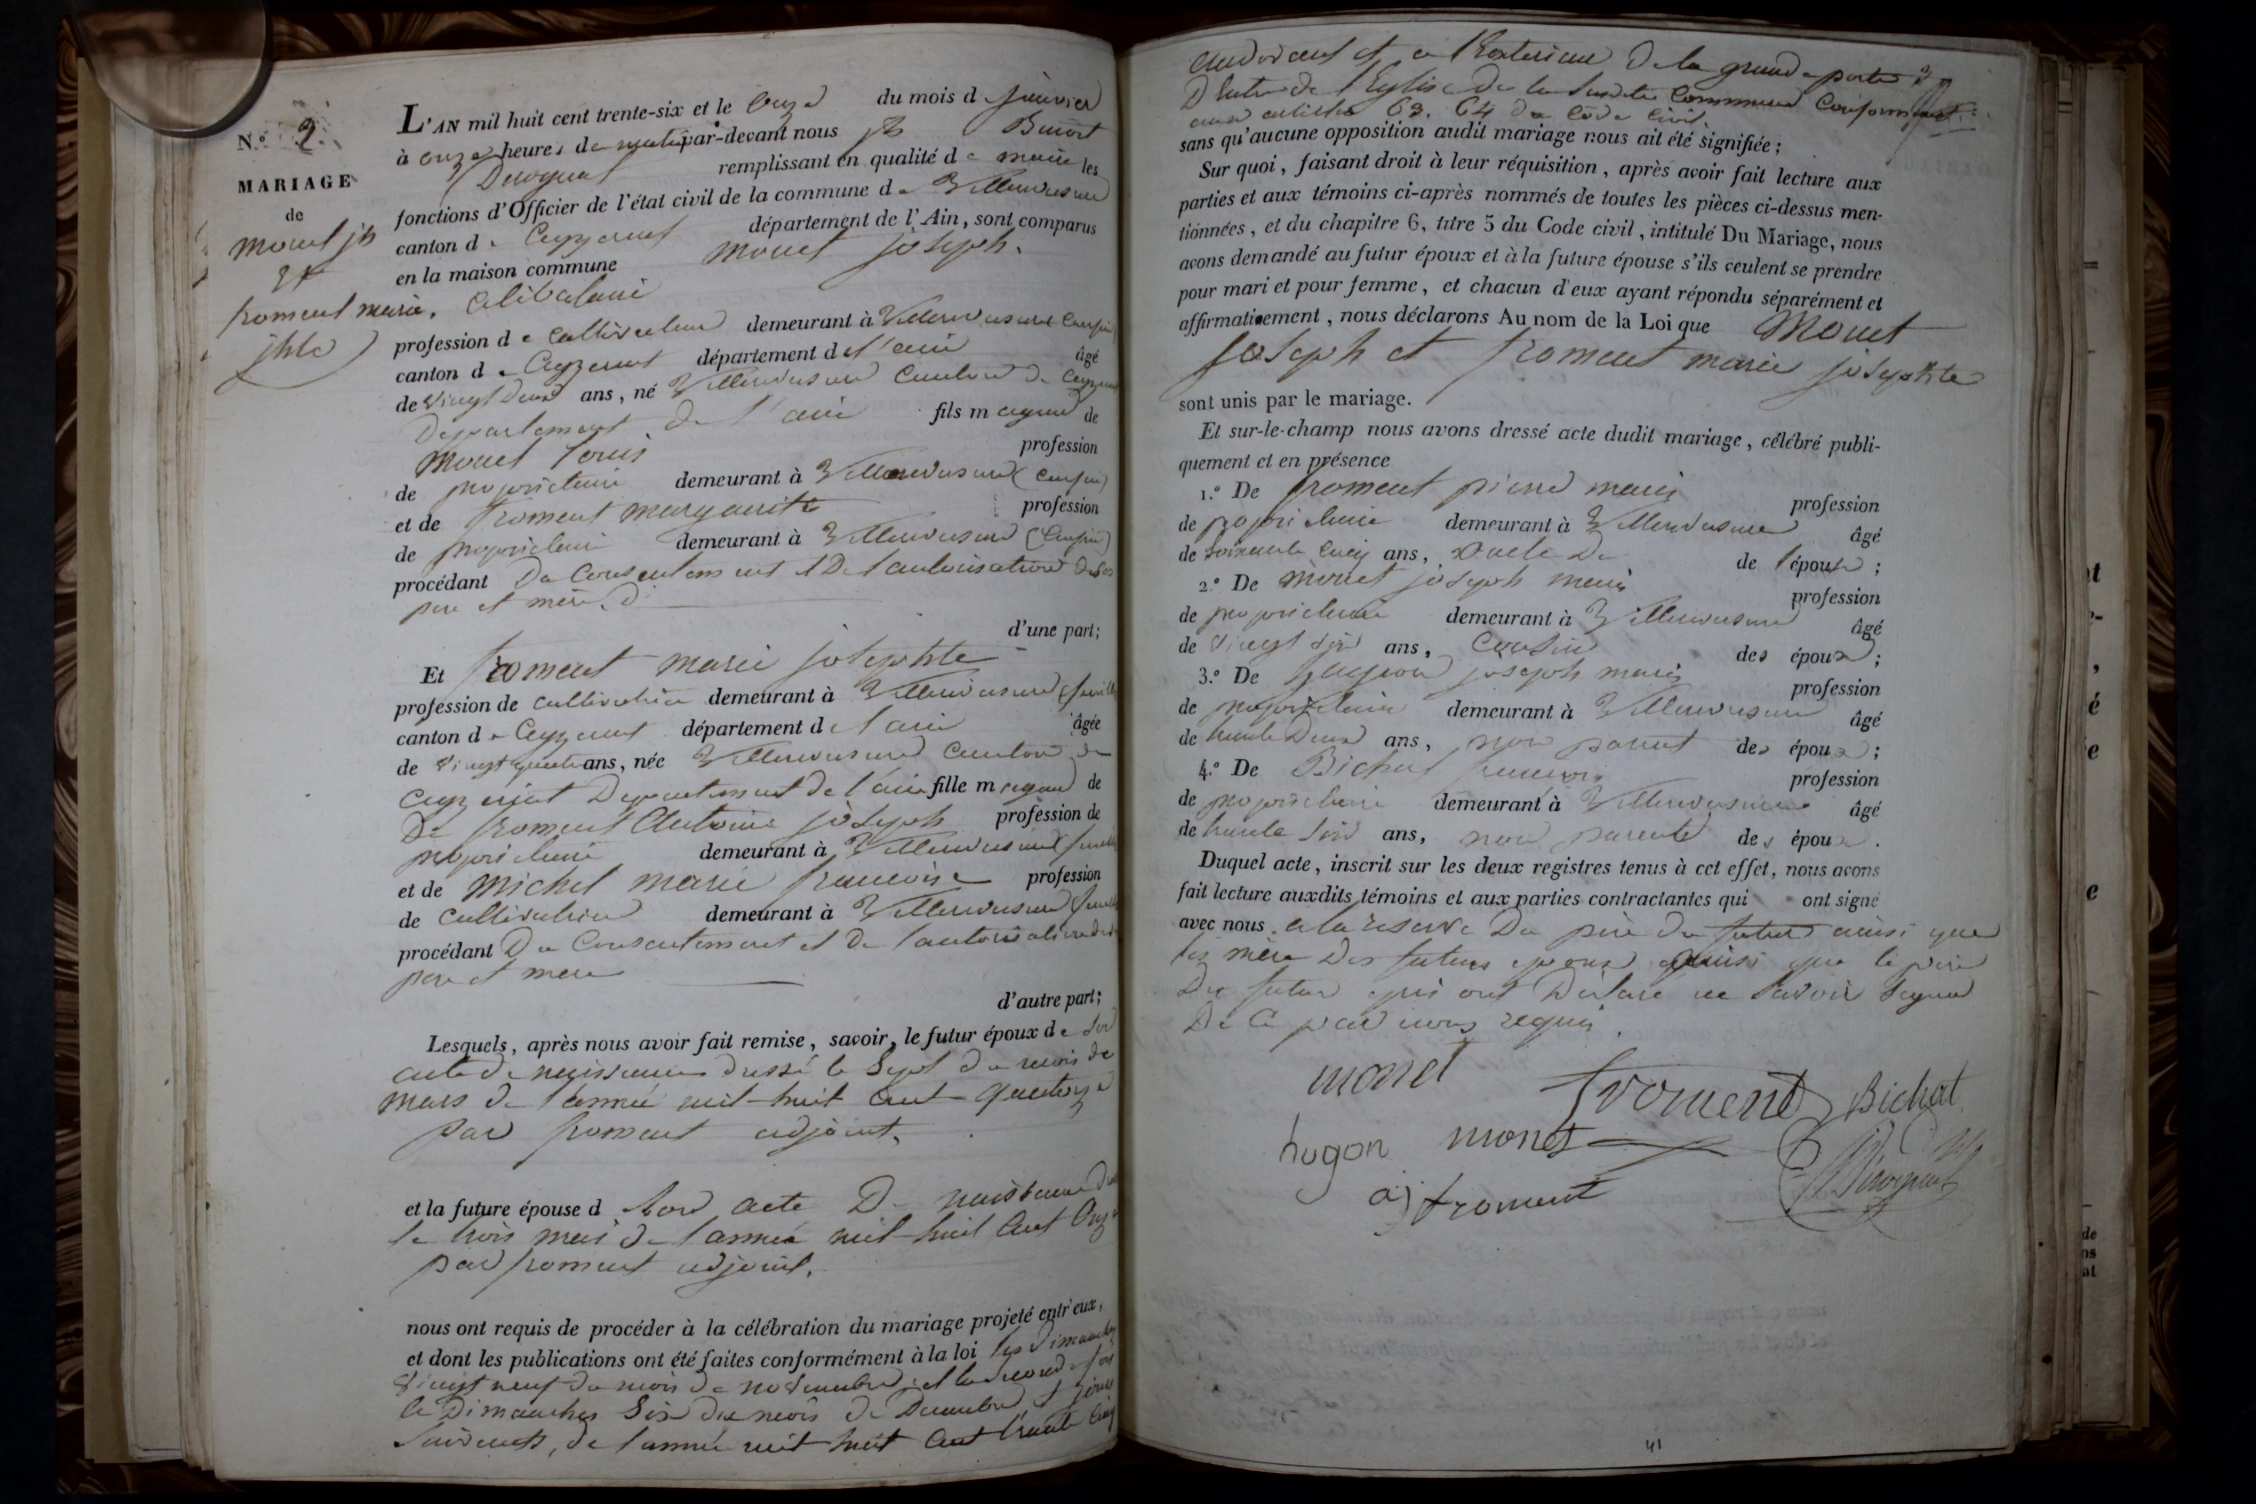 N.º 2.
MARIAGE
de
Monet jh
et
froment marie
jhte
L'AN mil huit cent trente-six et le onze du mois d janvier
à onze heures de matin par-devant nous jh Benoit
Derognat remplissant en qualité de maire les
fonctions d'Officier de l'état civil de la commune de Villereversure
canton de Ceyzeriat département de l'Ain, sont comparus
en la maison commune Monet joseph.
Celibataire
profession de cultivateur demeurant à Villereversure
canton de Ceyzeriat département de l'ain âgé
de vingt deux ans, né Villereversure Canton de Ceyzeriat
Departement de l'ain fils majeur de
Monet Louis profession
de proprietaire demeurant à Villereversure
et de froment marguerite profession
de proprietaire demeurant à Villereversure
procédant Du Consentement et De l'autorisation de ses
pere et mere.
d'une part;
Et froment marie josephte
profession de cultivatrice demeurant à Villereversure
canton de Ceyzeriat département de l'ain âgée
de vingt quatre ans, née Villereversure Canton de
Ceyzeriat Departement de l'ain fille majeure de
De froment Antoine joseph profession de
proprietaire demeurant à Villereversure
et de Michel marie francoise profession
de cultivatrice demeurant à Villereversure
procédant Du Consentement et de l'autorisation de ses
pere et mere
d'autre part;
Lesquels, après nous avoir fait remise, savoir, le futur époux de son
acte de naissance dressé le Sept du mois de
mars de l'année mil-huit Cent-quatorze
par froment adjoint.
et la future épouse d son acte De naissance
le trois mai de l'année mil-huit Cent Onze
par froment adjoint.
nous ont requis de procéder à la célébration du mariage projeté entr'eux,
et dont les publications ont été faites conformément à la loi les Dimanches
vingt neuf du mois de novembre et la seconde fois
le Dimanches Six du mois de Decembre et jours
suivants, de l'année mil huit Cent trente Cinq
et a l'Exterieur De la grande porte
D'entrée de l'Eglise de la susdite Commune Conformément
aux articles 63. 64 du Code Civil.
sans qu'aucune opposition audit mariage nous ait été signifiée;
Sur quoi, faisant droit à leur réquisition, après avoir fait lecture aux
parties et aux témoins ci-après nommés de toutes les pièces ci-dessus men-
tionnées, et du chapitre 6, titre 5 du Code civil, intitulé Du Mariage, nous
avons demandé au futur époux et à la future épouse s'ils veulent se prendre
pour mari et pour femme, et chacun d'eux ayant répondu séparément et
affirmativement, nous déclarons Au nom de la Loi que Monet
Joseph et froment marie josephte
sont unis par le mariage.
Et sur-le-champ nous avons dressé acte dudit mariage, célébré publi-
quement et en présence
1.º De froment pierre marie profession
de proprietaire demeurant à Villereversure âgé
de soixante cinq ans, oncle De de l'épouse;
2.º De Monet joseph marie profession
de proprietaire demeurant à Villereversure âgé
de vingt six ans, Cousin des époux;
3.º De joseph marie profession
de proprietaire demeurant à Villereversure âgé
de trente Deux ans, non parent des époux;
4.º De Bichat francois profession
de proprietaire demeurant à Villereversure âgé
de trente six ans, non parente des époux.
Duquel acte, inscrit sur les deux registres tenus à cet effet, nous avons
fait lecture auxdits témoins et aux parties contractantes qui ont signé
avec nous. a la reserve Du père du futur ainsi que
les mère Des futurs epoux ainsi que le père
Du futur qui ont Declaré ne savoir signer
De Ce par nous requis.
monet froment Bichat
hugon monet
aj froment Derognat
41